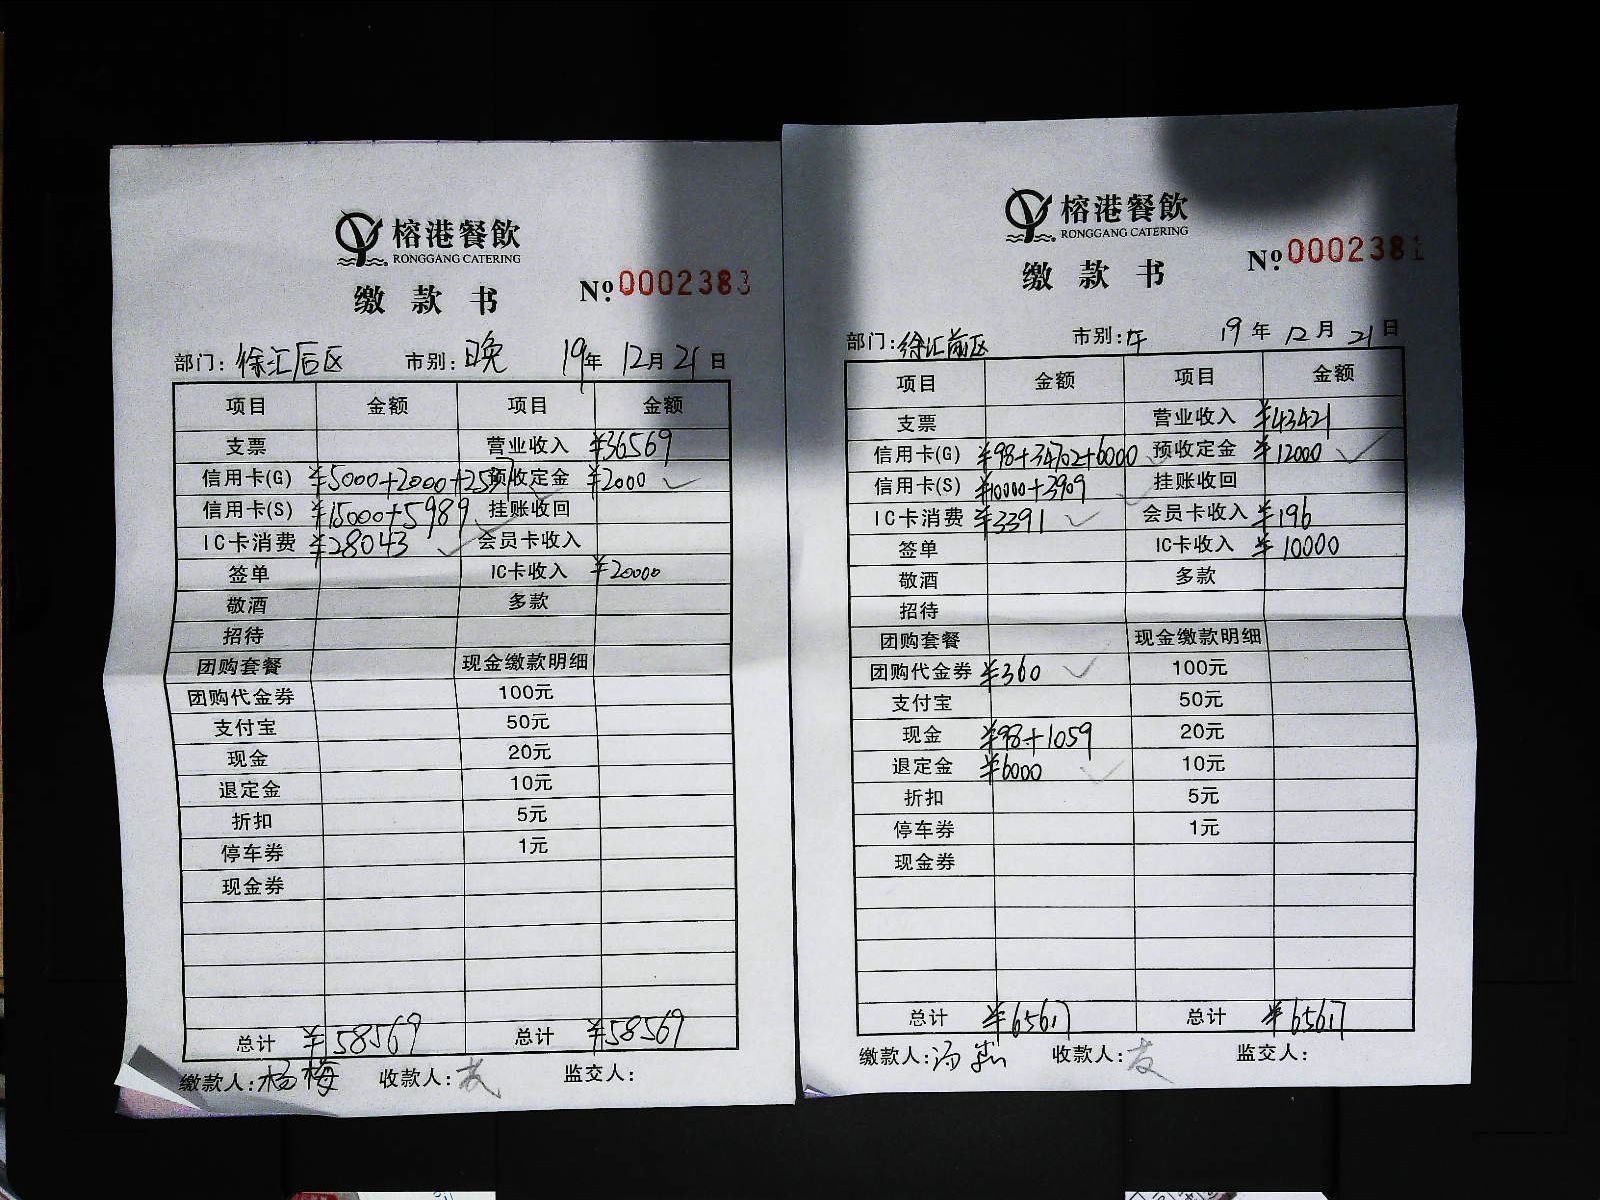 榕港餐飲
RONGGANG CATERING
缴款书
№ 0002383
部门：徐汇后区 市别：晚 19年 12月 21日
项目 金额 项目 金额
支票 营业收入 ¥36569
信用卡(G) ¥5000+2000+2537 预收定金 ¥2000
信用卡(S) ¥15000+5989 挂账收回
IC卡消费 ¥28043 会员卡收入
签单 IC卡收入 ¥20000
敬酒 多款
招待
团购套餐 现金缴款明细
团购代金券 100元
支付宝 50元
现金 20元
退定金 10元
折扣 5元
停车券 1元
现金券
总计 ¥58569 总计 ¥58569
缴款人：杨梅 收款人： 监交人：
榕港餐飲
RONGGANG CATERING
缴款书
№ 0002381
部门：徐汇前区 市别：午 19年 12月 21日
项目 金额 项目 金额
支票 营业收入 ¥43421
信用卡(G) ¥98+34702+6000 预收定金 ¥12000
信用卡(S) ¥10000+3909 挂账收回
IC卡消费 ¥3391 会员卡收入 ¥196
签单 IC卡收入 ¥10000
敬酒 多款
招待
团购套餐 现金缴款明细
团购代金券 ¥360 100元
支付宝 50元
现金 ¥98+1059 20元
退定金 ¥6000 10元
折扣 5元
停车券 1元
现金券
总计 ¥65617 总计 ¥65617
缴款人： 收款人： 监交人：